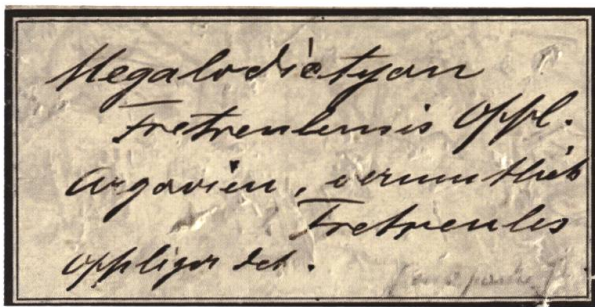 Megalodictyon
Fretreulensis Oppl.
Argovien, vermuthlich
Fretreules
Oppliger det.